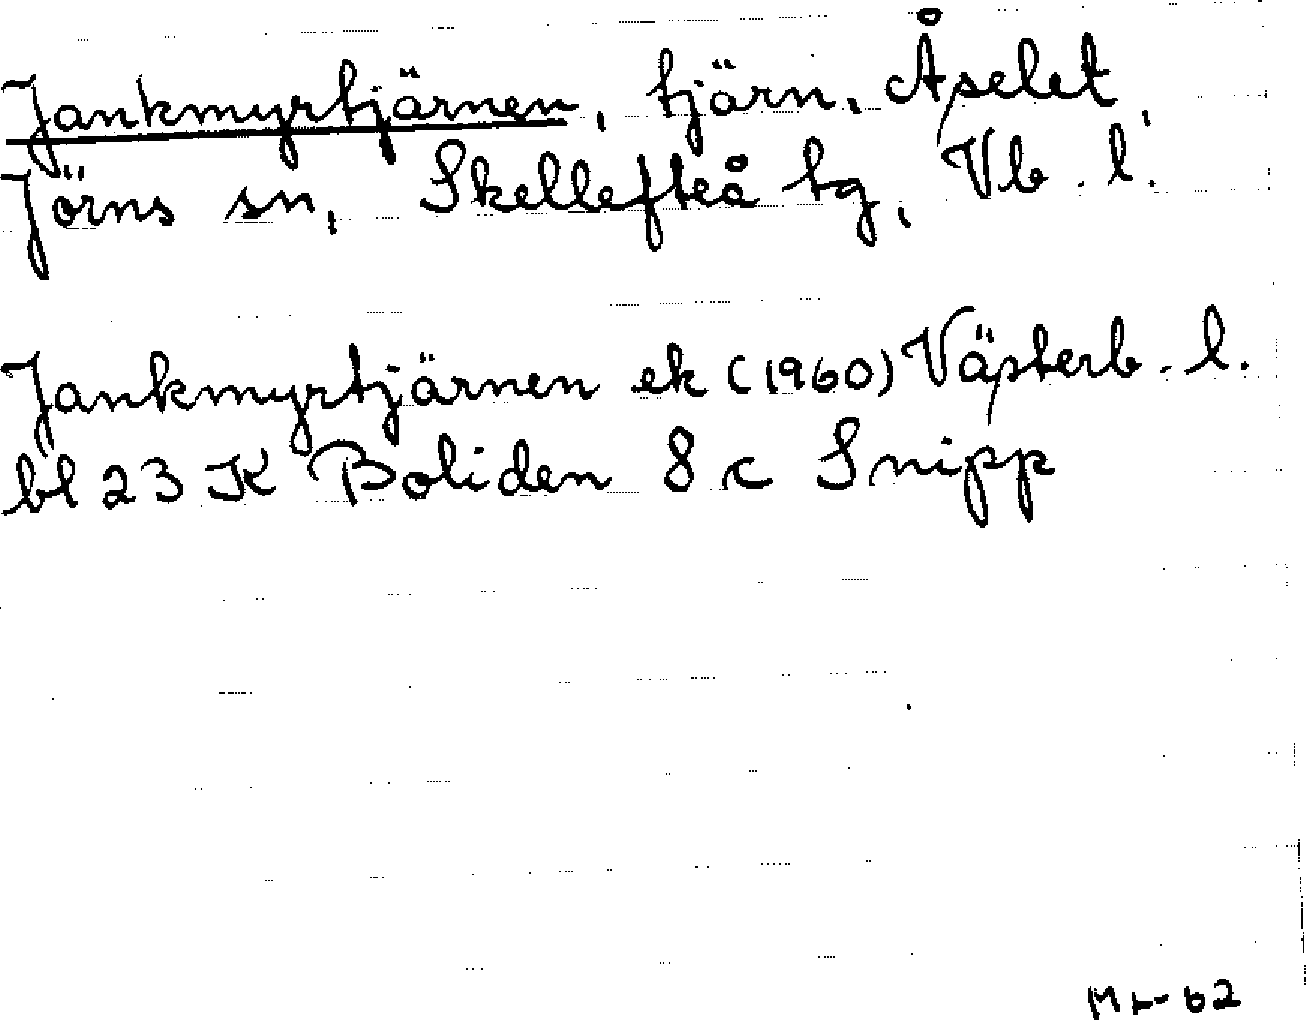 Jankmyrtjärnen, tjärn, Åselet,
Jörns sn, Skellefteå tg, Vb. l.
Jankmyrtjärnen ek (1960) Västerb. l.
bl 23 K Boliden 8 c Snipp